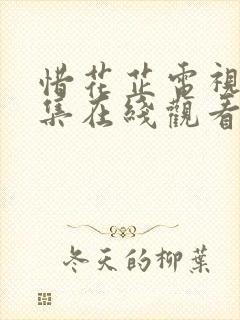 惜花芷電視
集在綫觀看
冬天的柳葉